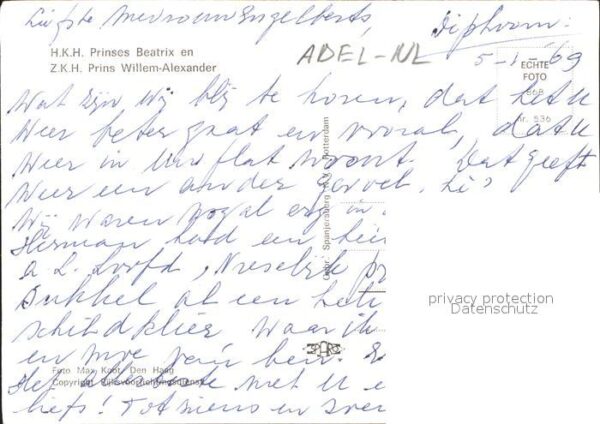 Liefste Mevrouw Engelberts,
H.K.H. Prinses Beatrix en
Z.K.H. Prins Willem-Alexander
ADEL-NL
5-1-'69
ECHTE
FOTO
nr. 536
Wat zijn wij blij te horen, dat het U
weer beter gaat en vooral, dat U
weer in Uw flat woont. Dat geeft
weer een ander gevoel.
Wij waren nogal erg in
Herman had een
Vreselijk
Sukkel al een hele
schildklier waar ik
en moe van ben.
Het allerbeste met U
liefs! Tot ziens en
Gebr. Spanjersberg N.V. Rotterdam
Foto Max Koot, Den Haag
Copyright Rijksvoorlichtingsdienst
privacy protection
Datenschutz